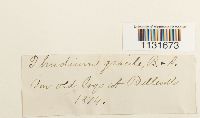 1131673
Thuidium gracile, B. & S.
On old logs at Belleville
1874.